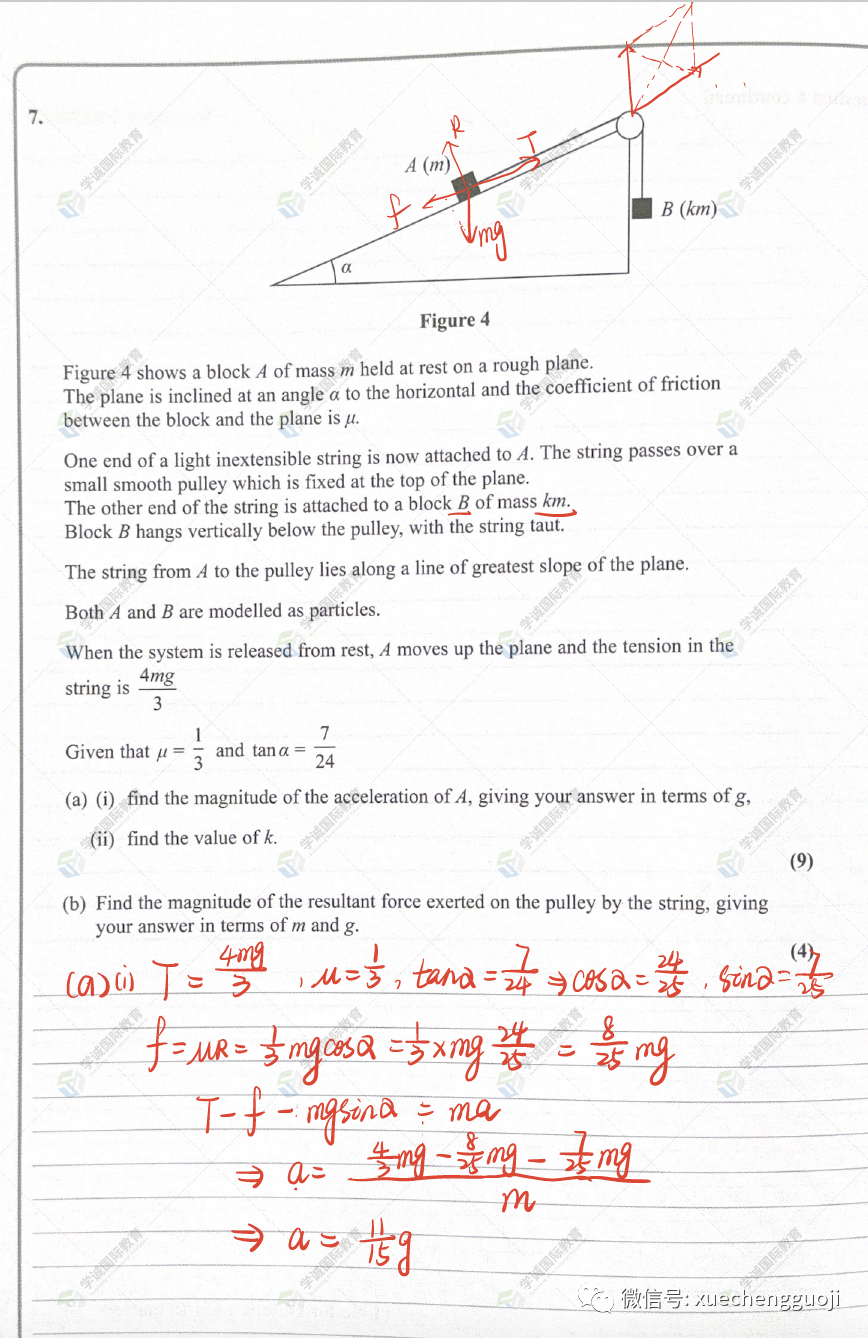 7.
R
T
A (m)
f
mg
B (km)
α
Figure 4
Figure 4 shows a block A of mass m held at rest on a rough plane.
The plane is inclined at an angle α to the horizontal and the coefficient of friction
between the block and the plane is μ.
One end of a light inextensible string is now attached to A. The string passes over a
small smooth pulley which is fixed at the top of the plane.
The other end of the string is attached to a block B of mass km.
Block B hangs vertically below the pulley, with the string taut.
The string from A to the pulley lies along a line of greatest slope of the plane.
Both A and B are modelled as particles.
When the system is released from rest, A moves up the plane and the tension in the
string is 4mg/3
Given that μ = 1/3 and tan α = 7/24
(a) (i) find the magnitude of the acceleration of A, giving your answer in terms of g,
(ii) find the value of k.
(9)
(b) Find the magnitude of the resultant force exerted on the pulley by the string, giving
your answer in terms of m and g.
(4)
(a)(i) T = 4mg/3, μ = 1/3, tanα = 7/24 ⇒ cosα = 24/25, sinα = 7/25
f = μR = 1/3 mgcosα = 1/3 × mg 24/25 = 8/25 mg
T - f - mgsinα = ma
⇒ a = (4/3 mg - 8/25 mg - 7/25 mg)/m
⇒ a = 11/15 g
学诚国际教育
微信号: xuechengguoji